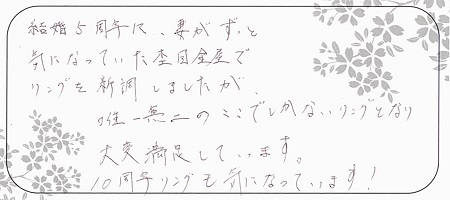 結婚5周年に、妻がずっと
気になっていた杢目金屋で
リングを新調しましたが、
唯一無二のここでしかないリングとなり
大変満足しています。
10周年リングも気になっています!